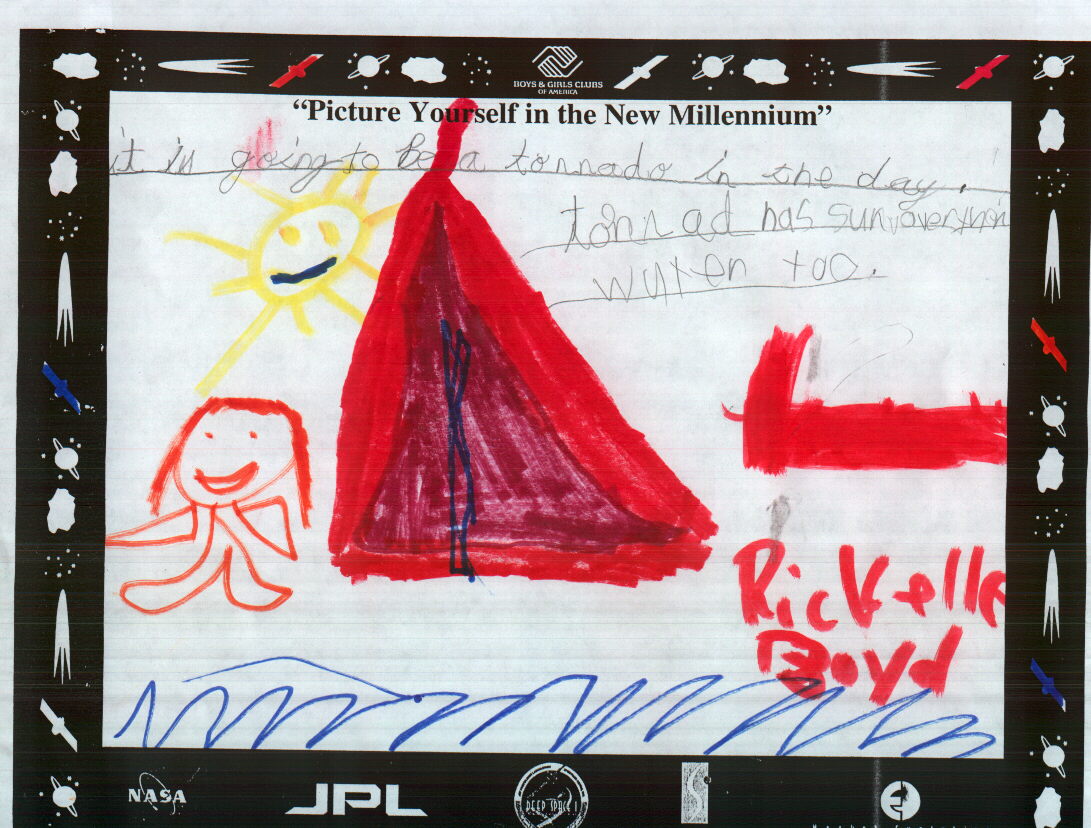 BOYS & GIRLS CLUBS
OF AMERICA
“Picture Yourself in the New Millennium”
it is going to be a tornado in the day.
tonnad has sun
too.
Rickelle
Boyd
NASA
JPL
DEEP SPACE 1